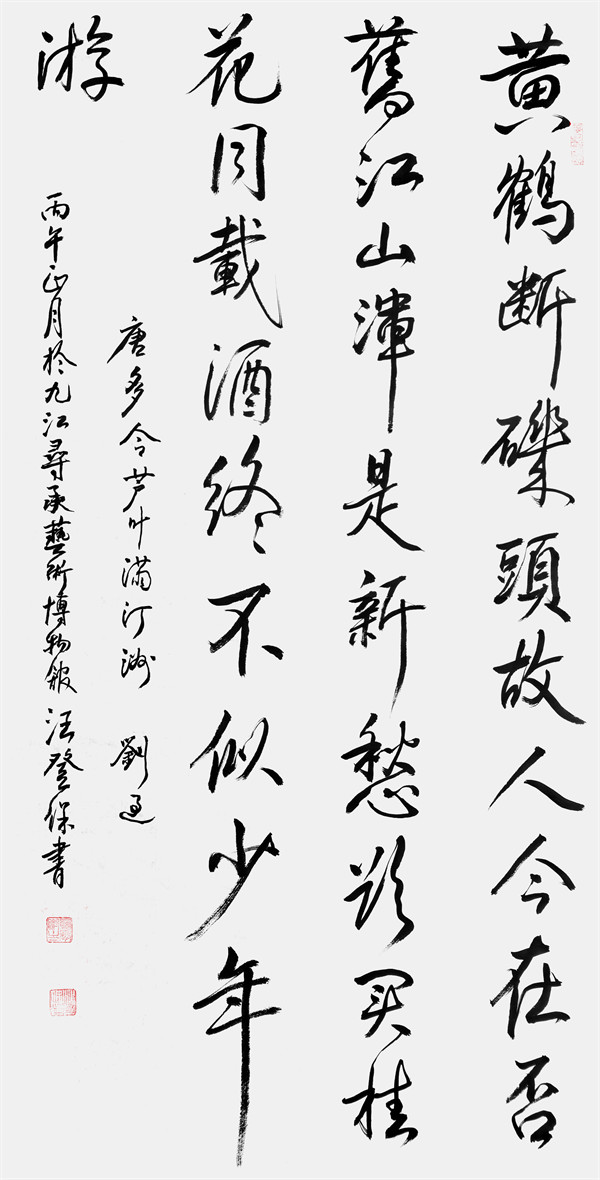 黄鶴断磯頭故人今在否
舊江山渾是新愁欲買桂
花同載酒終不似少年
游
唐多令芦叶滿汀洲 劉過
丙午正月於九江尋承藝術博物館汪登保書